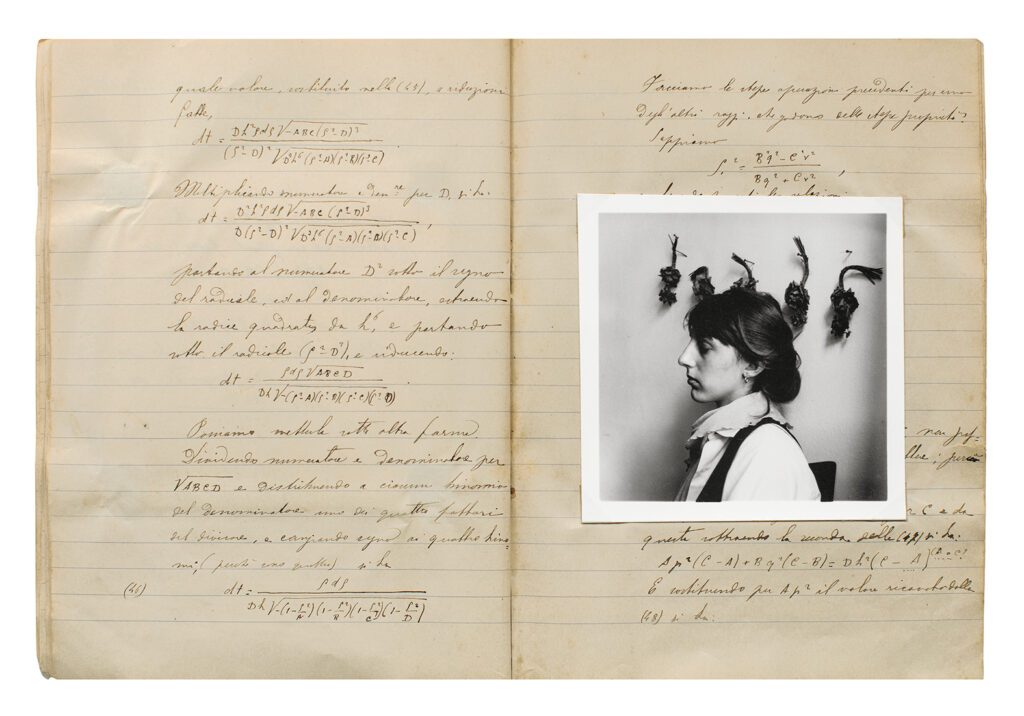 quale valore, sostituito nella (43), e riduzioni
fatte,
dt = Dh²ρdρ√-ABC(ρ²-D)³ / (ρ²-D)²√D³h⁶(ρ²-A)(ρ²-B)(ρ²-C)
Multiplicando numeratore e den.re per D, si ha:
dt = D²h²ρdρ√-ABC(ρ²-D)³ / D(ρ²-D)²√D³h⁶(ρ²-A)(ρ²-B)(ρ²-C) ,
portando al numeratore D² sotto il segno
del radicale, ed al denominatore, estraendo
la radice quadrata da h⁶, e portando
sotto il radicale (ρ²-D), e riducendo:
dt = ρdρ√ABCD / Dh√-(ρ²-A)(ρ²-B)(ρ²-C)(ρ²-D)
Poniamo mettерla sotto altra forma.
Dividendo numeratore e denominatore per
√ABCD e distribuendo a ciascun binomio
del denominatore uno dei quattro fattori
del divisore, e cangiando segno ai quattro bino=
mi, ( ) si ha
(46) dt = ρdρ / Dh√-(1-ρ²/A)(1-ρ²/B)(1-ρ²/C)(1-ρ²/D)
Facciamo le stesse operazioni precedenti per uno
degl'altri raggi, che godono delle stesse proprietà.
Sappiamo
ρ₁² = B²q² - C²r² / Bq² + Cr² ,
C e da
queste sottraendo la seconda delle si ha:
Ap²(C-A) + Bq²(C-B) = Dh²(C-
E sostituendo per Ap² il valore ricavato dalla
(48) si ha: